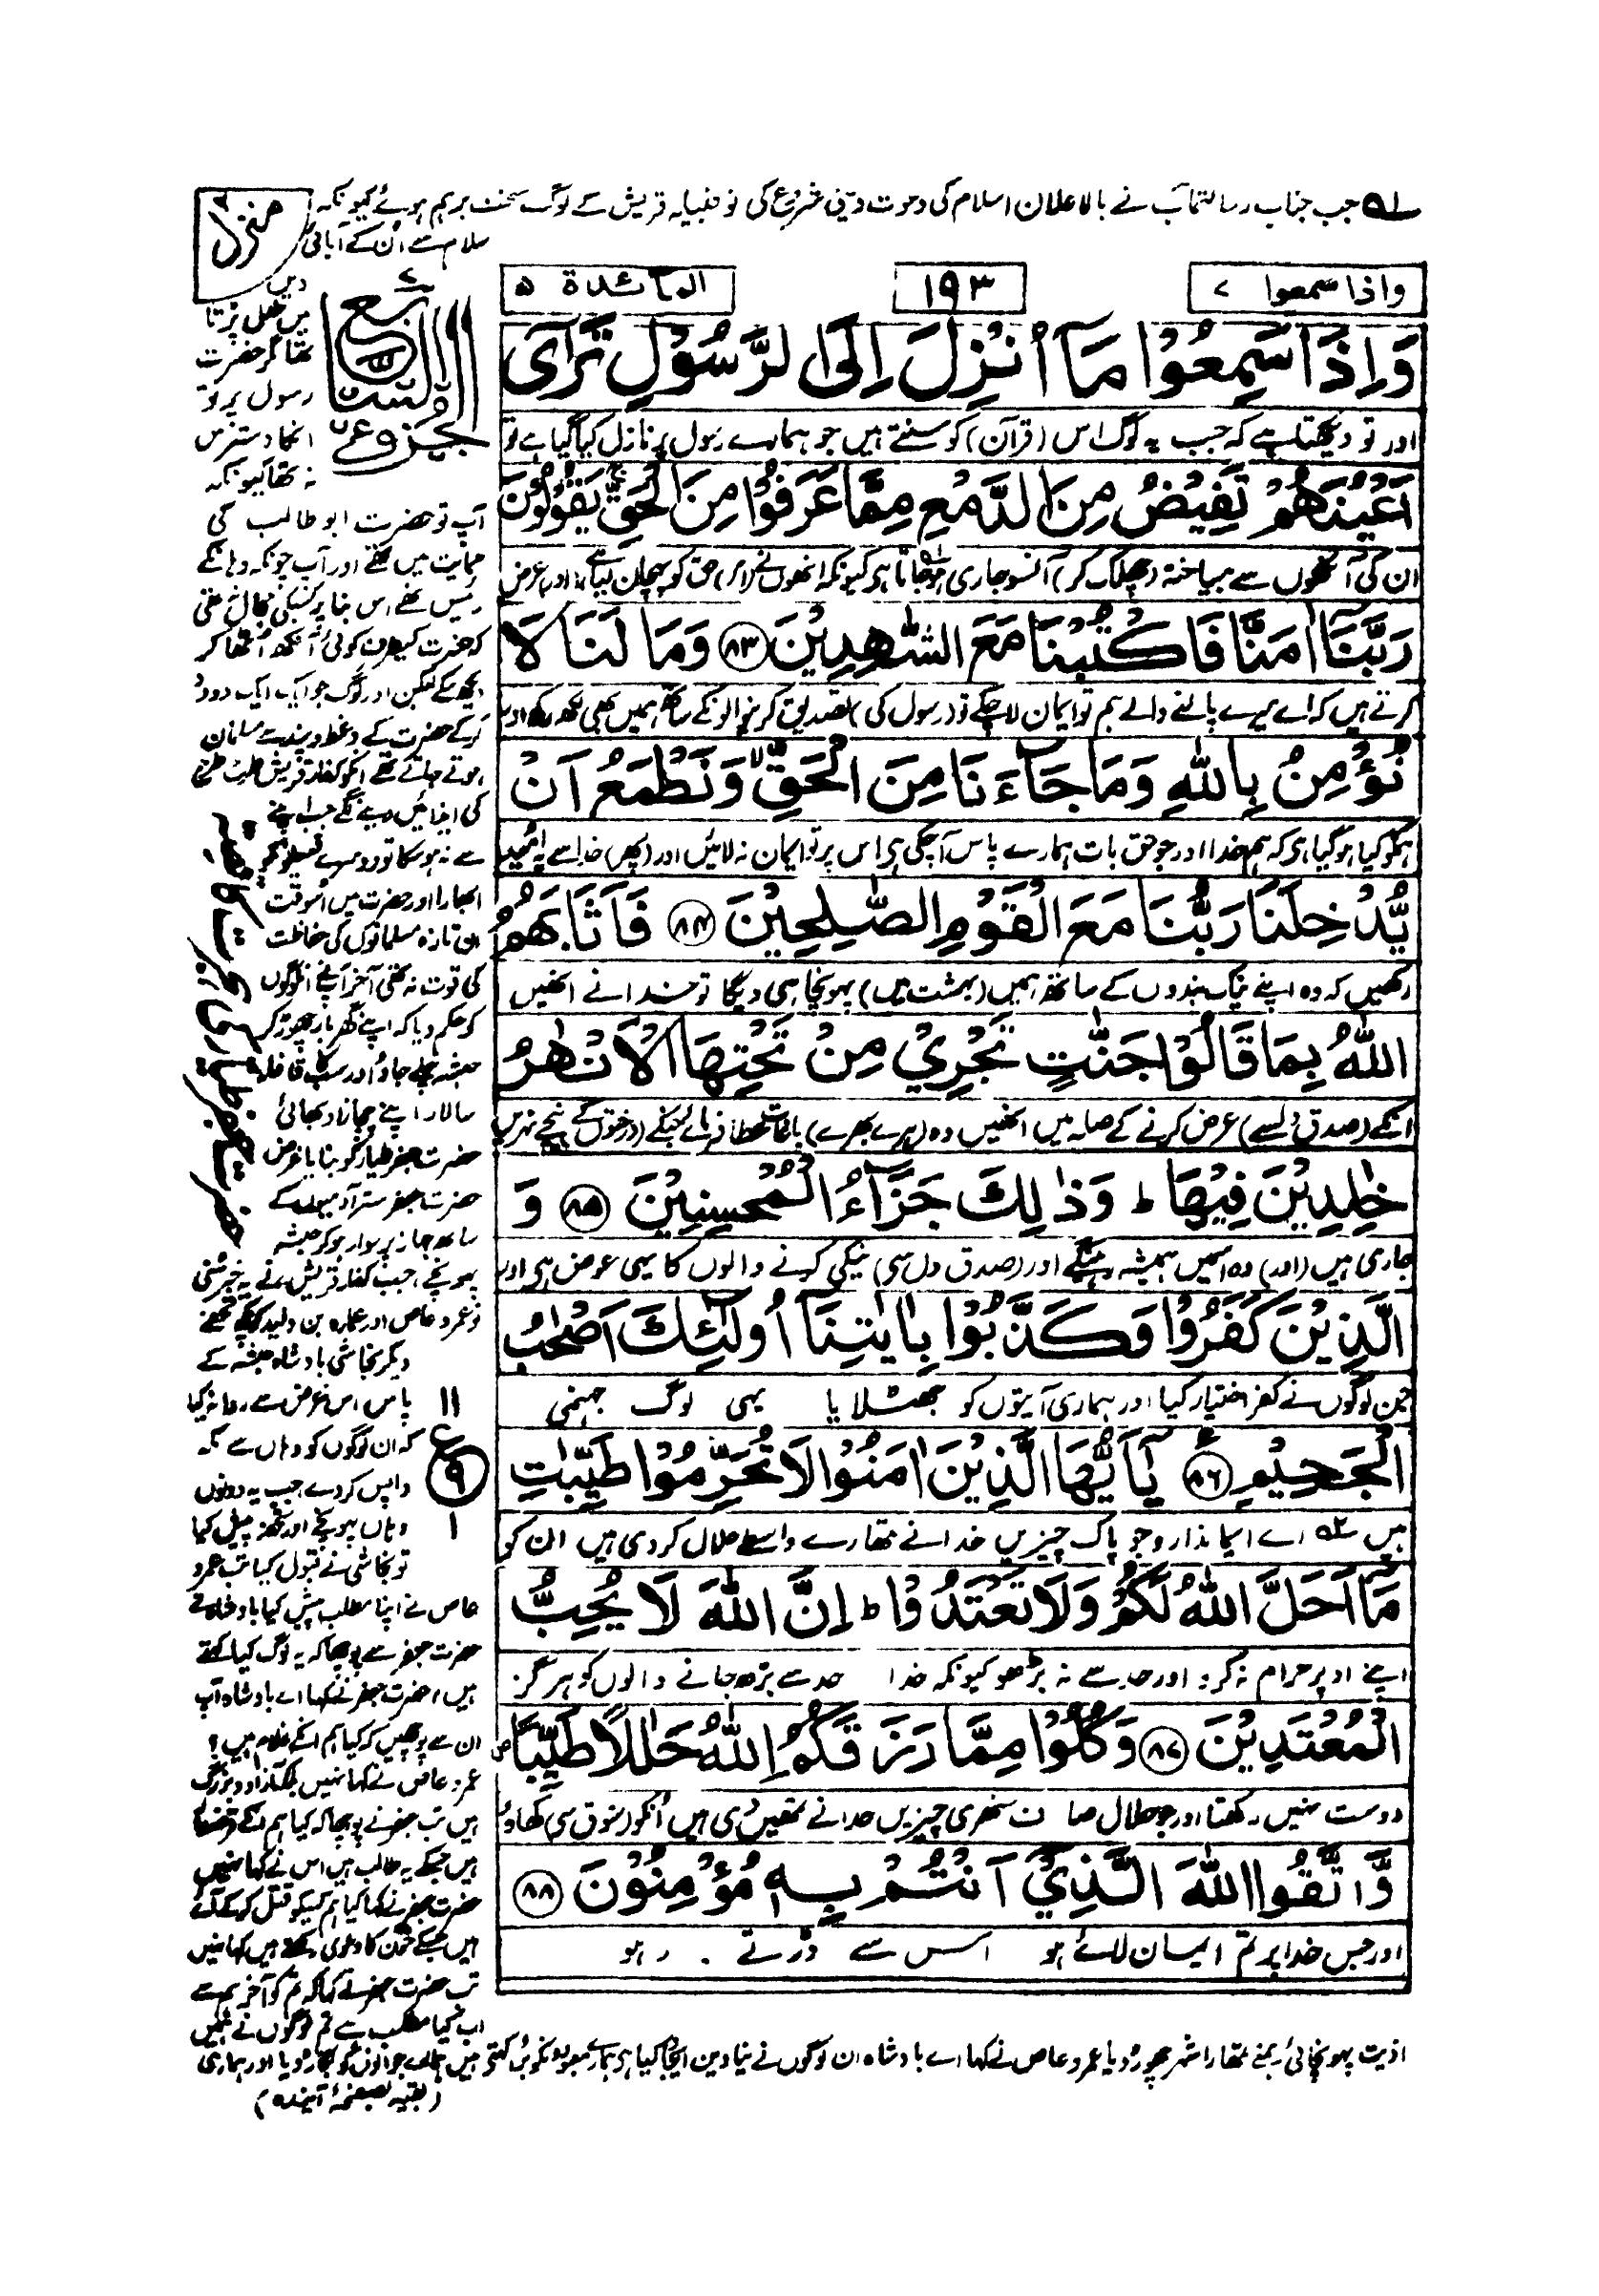 ۱ جب جناب رسالتمآب نے بالاعلان اسلام کی دعوت دینی شروع کی تو قبیلہ قریش کے لوگ سخت برہم ہوئے کیونکہ
سلام سے اُن کے آبائی
منزل ۲
واذا سمعوا ۷
۱۹۳
المائدة ۵
وَاِذَا سَمِعُوْا مَآ اُنْزِلَ اِلَى الرَّسُوْلِ تَرٰٓى
اور تو دیکھتا ہے کہ جب یہ لوگ اس (قرآن) کو سنتے ہیں جو ہمارے رسول پر نازل کیا گیا ہے تو
اَعْيُنَهُمْ تَفِيْضُ مِنَ الدَّمْعِ مِمَّا عَرَفُوْا مِنَ الْحَقِّ يَقُوْلُوْنَ
ان کی آنکھوں سے بیساختہ (چھلک کر) آنسو جاری ہو جاتا ہی کیونکہ انھوں نے حق کو پہچان لیا ہے اور عرض
رَبَّنَآ اٰمَنَّا فَاكْتُبْنَا مَعَ الشّٰهِدِيْنَ ۸۳ وَمَا لَنَا لَا
کرتے ہیں کہ اے میرے پالنے والے ہم تو ایمان لا چکے تو (رسول کی) تصدیق کرنیوالونکے ساتھ ہمیں بھی لکھ رکھ اور
نُؤْمِنُ بِاللّٰهِ وَمَا جَآءَنَا مِنَ الْحَقِّ وَنَطْمَعُ اَنْ
ہمکو کیا ہو گیا ہی کہ ہم خدا اور جو حق بات ہمارے پاس آ چکی ہی اس پر تو ایمان نہ لائیں اور (پھر) خدا سے یہ اُمید
يُّدْخِلَنَا رَبُّنَا مَعَ الْقَوْمِ الصّٰلِحِيْنَ ۸۴ فَاَثَابَهُمُ
رکھیں کہ وہ اپنے نیک بندوں کے ساتھ ہمیں (بہشت میں) پہونچا ہی دیگا تو خدا نے انھیں
اللّٰهُ بِمَا قَالُوْا جَنّٰتٍ تَجْرِيْ مِنْ تَحْتِهَا الْاَنْهٰرُ
انکے (صدق دل سے) عرض کرنے کے صلہ میں انھیں وہ (ہرے بھرے) باغات عطا فرمائے جنکے (درختوں کے) نیچے نہریں
خٰلِدِيْنَ فِيْهَا ط وَذٰلِكَ جَزَآءُ الْمُحْسِنِيْنَ ۸۵ وَ
جاری ہیں (اور) وہ اسمیں ہمیشہ رہینگے اور (صدق دل سی) نیکی کرنے والوں کا یہی عوض ہی اور
الَّذِيْنَ كَفَرُوْا وَكَذَّبُوْا بِاٰيٰتِنَآ اُولٰٓئِكَ اَصْحٰبُ
جن لوگوں نے کفر اختیار کیا اور ہماری آیتوں کو جھٹلایا یہی لوگ جہنمی
الْجَحِيْمِ ۸۶ يٰٓاَيُّهَا الَّذِيْنَ اٰمَنُوْا لَا تُحَرِّمُوْا طَيِّبٰتِ
ہیں ۲ اے ایماندارو جو پاک چیزیں خدا نے تمھارے واسطے حلال کر دی ہیں ان کو
مَآ اَحَلَّ اللّٰهُ لَكُمْ وَلَا تَعْتَدُوْا ط اِنَّ اللّٰهَ لَا يُحِبُّ
اپنے اوپر حرام نہ کرو اور حد سے نہ بڑھو کیونکہ خدا حد سے بڑھ جانے والوں کو ہرگز
الْمُعْتَدِيْنَ ۸۷ وَكُلُوْا مِمَّا رَزَقَكُمُ اللّٰهُ حَلٰلًا طَيِّبًا ص
دوست نہیں رکھتا اور جو حلال صاف ستھری چیزیں خدا نے تمھیں دی ہیں اُنکو (شوق سی) کھاؤ
وَّاتَّقُوا اللّٰهَ الَّذِيْٓ اَنْتُمْ بِهٖ مُؤْمِنُوْنَ ۸۸
اور جس خدا پر تم ایمان لائے ہو اسی سے ڈرتے رہو
دین
میں خلل پڑتا
تھا مگر حضرت
رسول پر تو
انکا دسترس
نہ تھا کیونکہ
آپ تو حضرت ابوطالب کی
حمایت میں تھے اور آپ چونکہ وہاں کے
رئیس تھے اس بنا پر کسکی مجال تھی
کہ حضرت کیطرف کوئی آنکھ اُٹھا کر
دیکھ سکے لیکن اور لوگ جو ایک ایک دو دو
کرکے حضرت کے وعظ و پند سے مسلمان
ہوتے جاتے تھے انکو کفار قریش طرح طرح
کی ایذائیں دینے لگے جب اپنے
سے نہ ہو سکا تو دوسرے قبیلونکو
ابھارا اور حضرت میں اُسوقت
ان تازہ مسلمانوں کی حفاظت
کی قوت نہ تھی آخر آپنے ان لوگوں
کو حکم دیا کہ اپنے گھر بار چھوڑ کر
حبشہ چلے جاؤ اور سب کا قافلہ
سالار اپنے چچازاد بھائی
حضرت جعفر طیار کو بنایا غرض
حضرت جعفر ستر آدمیوں کے
ساتھ جہاز پر سوار ہو کر حبشہ
پہونچے، جب کفار قریش نے یہ خبر سنی
تو عمرو عاص اور عمارہ بن ولید کو کچھ تحفے
دیکر نجاشی بادشاہ حبشہ کے
پاس اس غرض سے روانہ کیا
کہ ان لوگوں کو وہاں سے مکہ
واپس کر دے جب یہ دونوں
وہاں پہونچے اور تحفہ پیش کیا
تو نجاشی نے قبول کیا تب عمرو
عاص نے اپنا مطلب پیش کیا بادشاہ نے
حضرت جعفر سے پوچھا کہ یہ لوگ کیا کہتے
ہیں، حضرت جعفر نے کہا اے بادشاہ آپ
ان سے پوچھیں کہ کیا ہم انکے غلام ہیں؟
عمرو عاص نے کہا نہیں بلکہ آزاد و بزرگ
ہیں تب جعفر نے پوچھا کہ کیا ہم انکے قرضدار
ہیں جسکے یہ طالب ہیں اس نے کہا نہیں
حضرت جعفر نے کہا کیا ہم کسیکو قتل کر کے آئے
ہیں جسکے خون کا دعوی رکھتے ہیں کہا نہیں
تب حضرت جعفر نے کہا کہ تم کو آخر ہم سے
اب کیا مطلب ہے تم لوگوں نے ہمیں
۱۱
ع
۹
۱
اذیت پہونچائی ہمنے تمھارا شہر چھوڑ دیا عمرو عاص نے کہا اے بادشاہ ان لوگوں نے نیا دین ایجاد کیا ہی ہمارے معبودونکو بُرا کہتے ہیں ہمارے جوانوں کو بگاڑ دیا اور ہماری
(بقیہ بصفحۂ آیندہ)